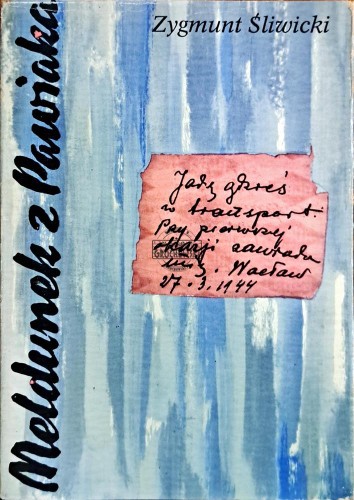 Zygmunt Śliwicki
Meldunek z Pawiaka
Jadę gdzieś
w transport.
Przy pierwszej
okazji zawiado
mię. Wacław
27.3.1944